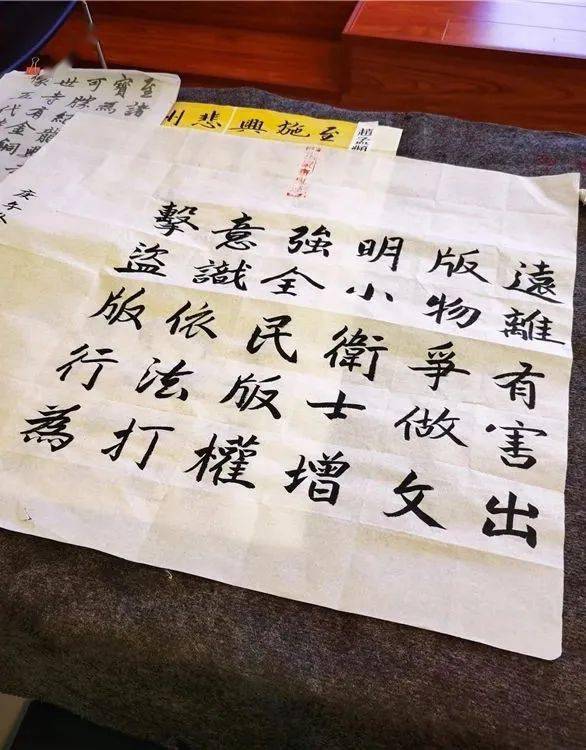 遠離有害出
版物爭做文
明小衛士增
強全民版權
意識依法打
擊盜版行為
至施興悲
趙孟頫
至諸
寶為
可勝
庚子